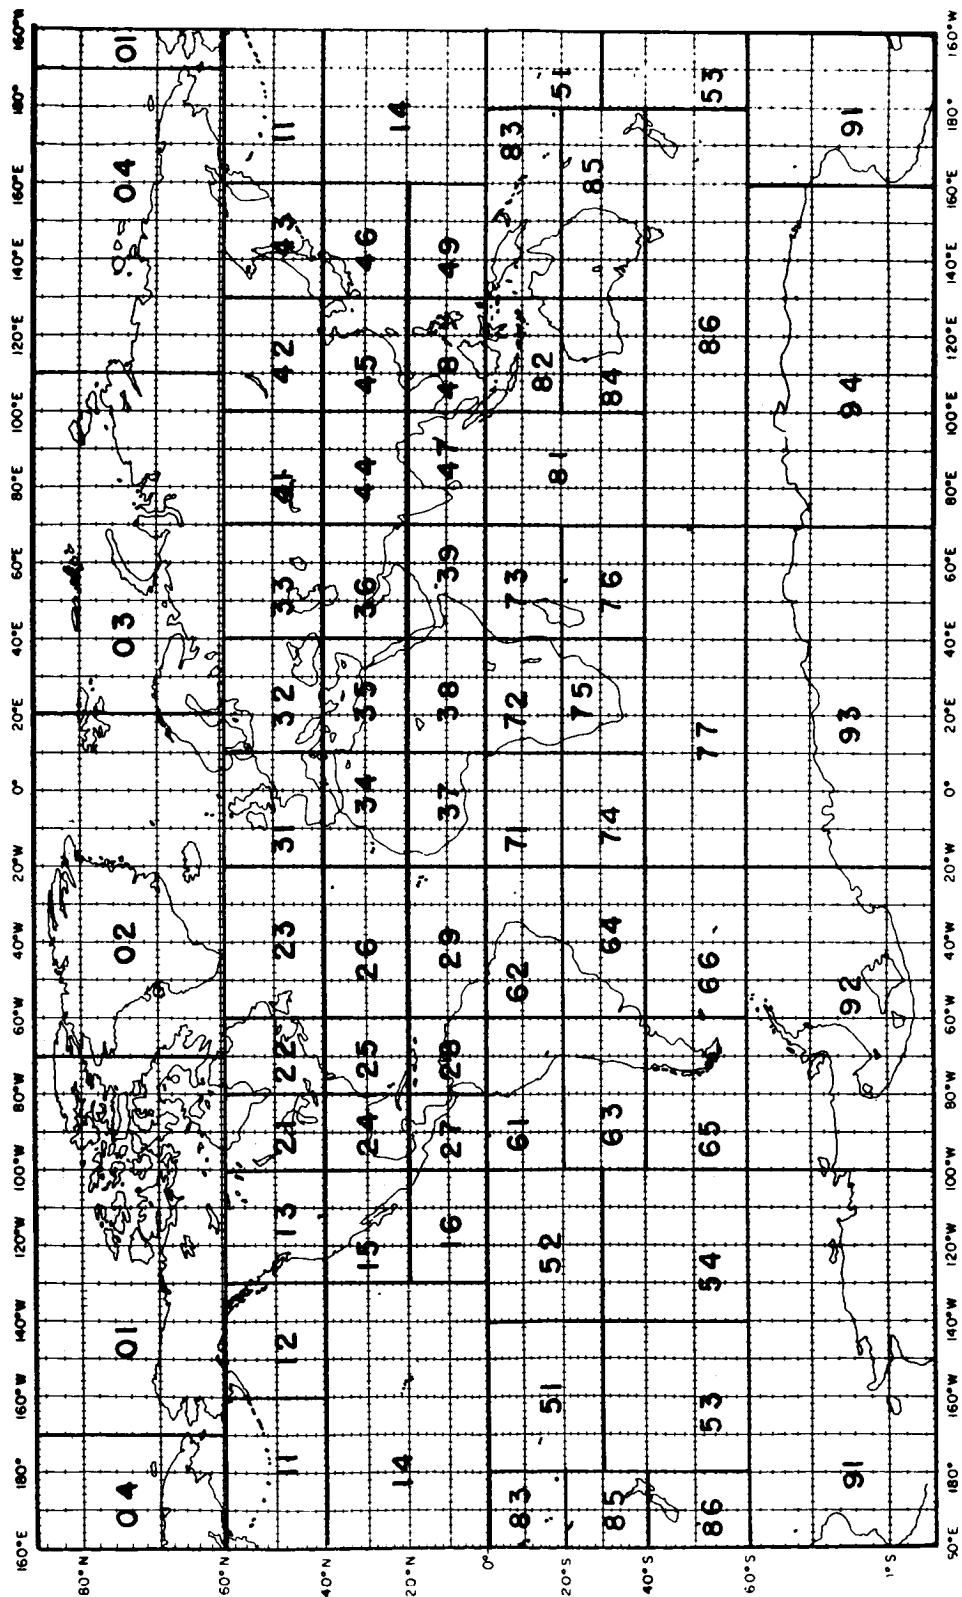 160°E 180° 160°W 140°W 120°W 100°W 80°W 60°W 40°W 20°W 0° 20°E 40°E 60°E 80°E 100°E 120°E 140°E 160°E 180° 160°W
80°N
04 01 02 03 04 01
60°N
11 12 13 21 22 23 31 32 33 41 42 43 11
40°N
15 24 25 26 34 35 36 44 45 46
14 14
20°N
16 27 28 29 37 38 39 47 48 49
0°
83 61 62 71 72 73 82 83
51 52 81 51
20°S
75 85
85 63 64 74 76 84
40°S
86 53 54 65 66 77 86 53
60°S
91 92 93 94 91
1°S
50°E 180° 160°W 140°W 120°W 100°W 80°W 60°W 40°W 20°W 0° 20°E 40°E 60°E 80°E 100°E 120°E 140°E 160°E 180° 160°W